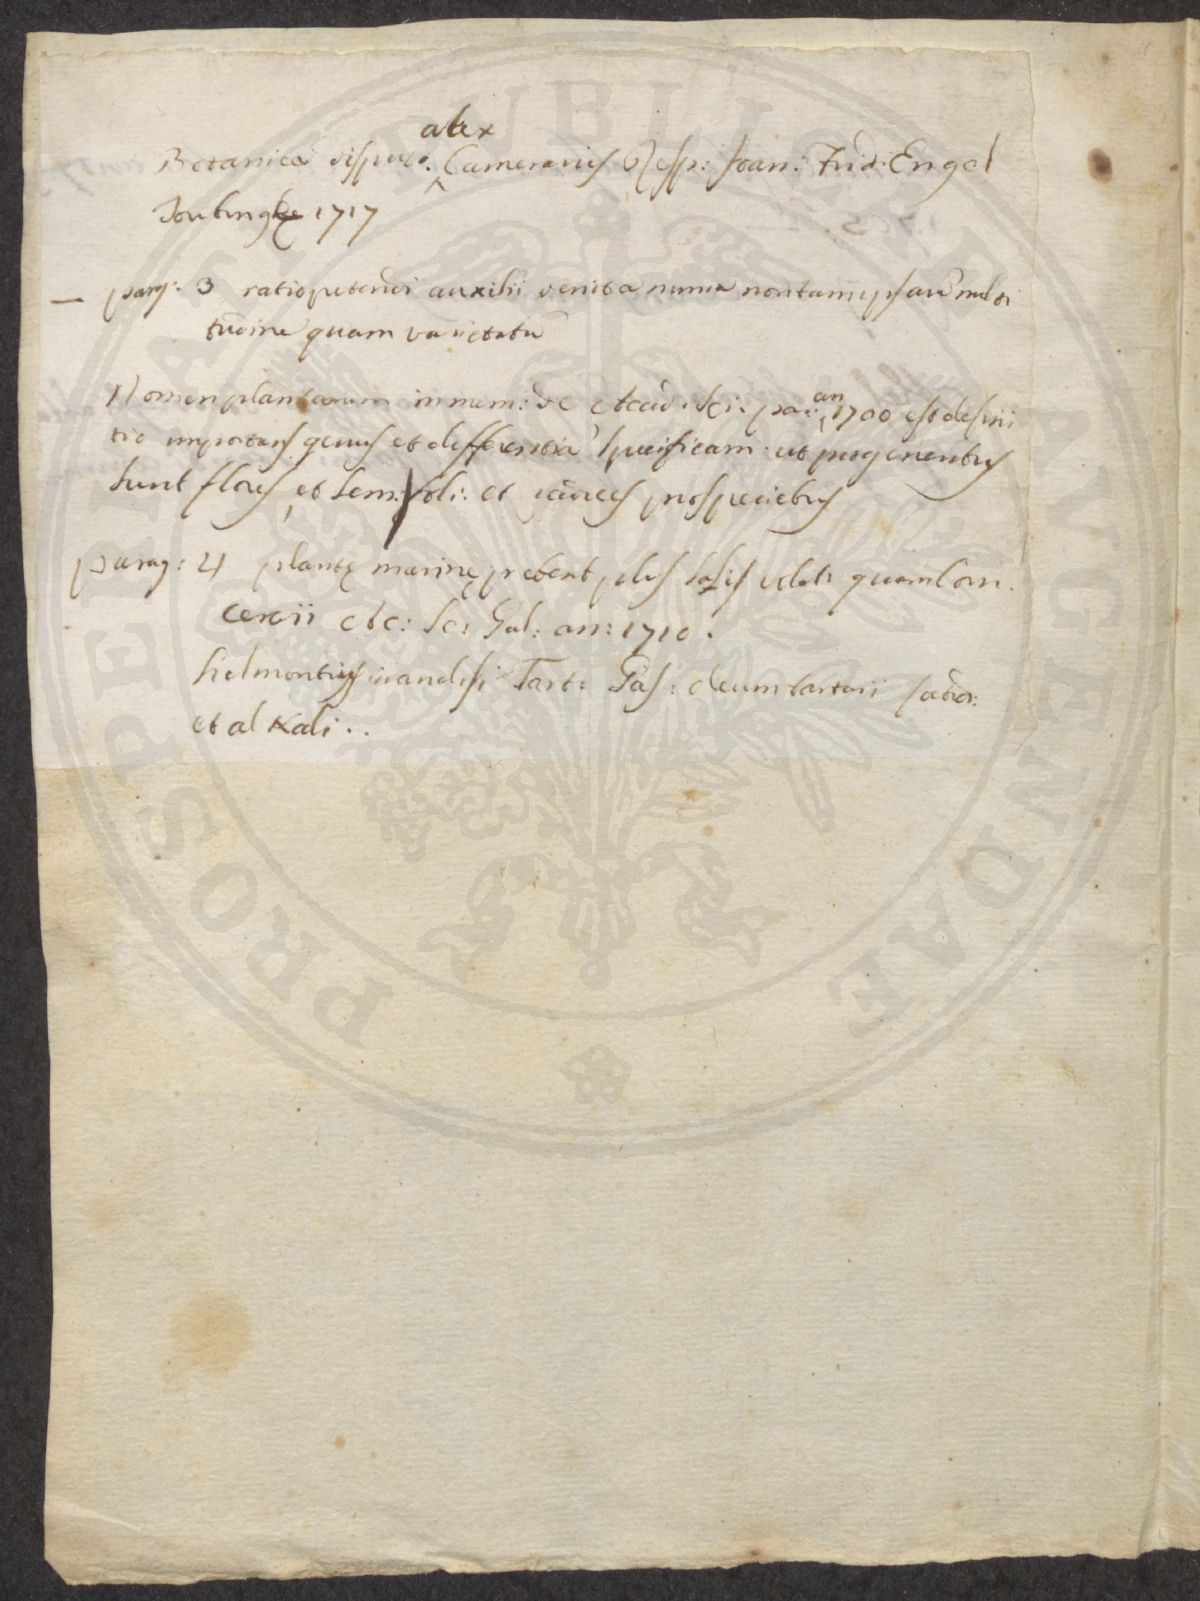 alex
Botanica disput. Camerarius Resp: Joan: Frid: Engel
Toubingę 1717
parag: 3 ratio petendi auxilii denita nimia non tam ipsarũ multi
tudine quam varietatũ
Nomen plantarum in mem: de Acad. Sci: par: an 1700 est defini
tio importans genus et differentiã specificam ut pro generibus
sunt flores, et sem: foli: et radices pro speciebus
parag: 4 plantę marinę prebent plus salis volati quam Corn.
cervii etc: Sc: Gal: an: 1710.
helmontius Tart: oleum tartari
et al Kali..
PROSPERITATI PUBLICAE AUGENDAE